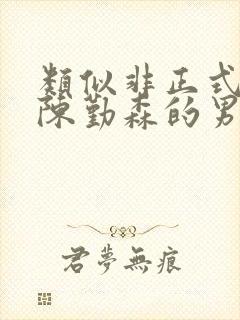 類似非正式
陳勤森的男
君夢無痕